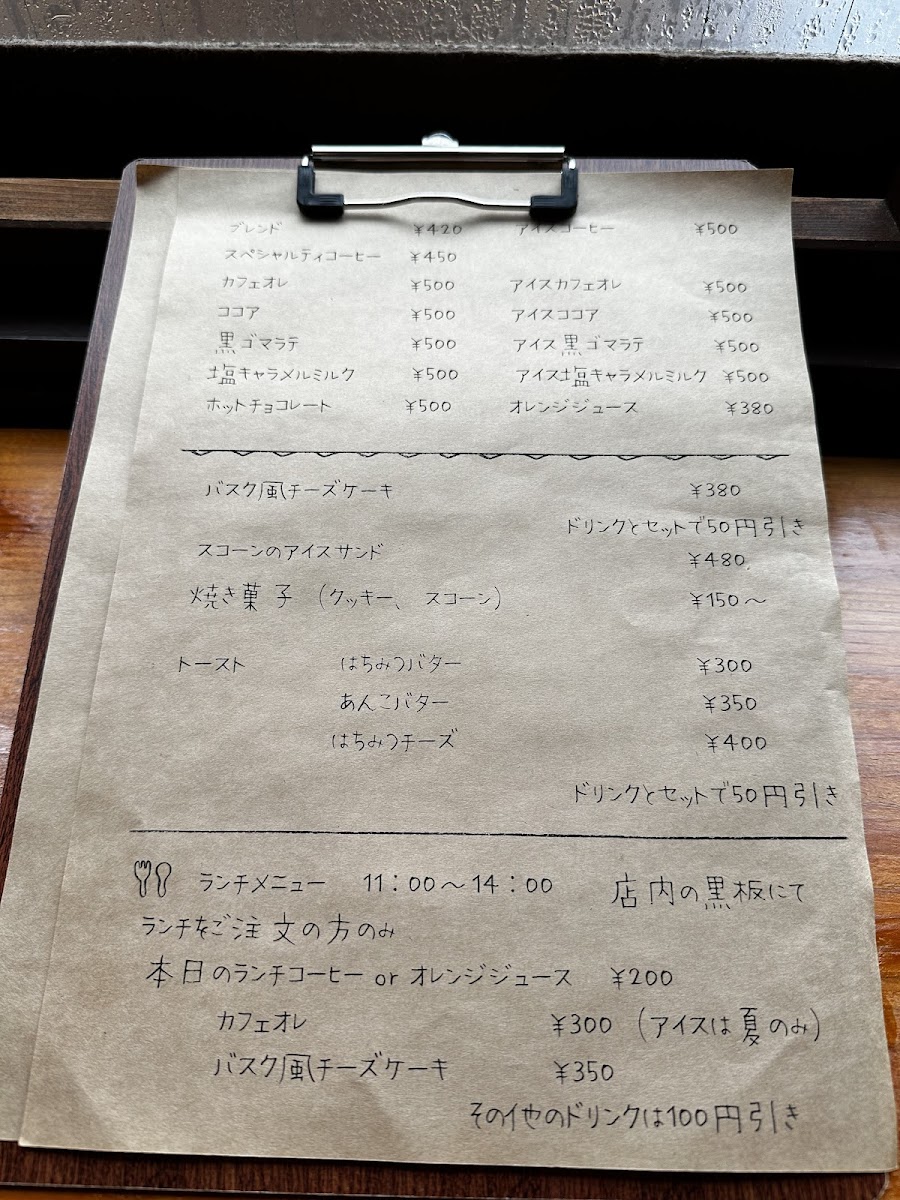 ブレンド ¥420 アイスコーヒー ¥500
スペシャルティコーヒー ¥450
カフェオレ ¥500 アイスカフェオレ ¥500
ココア ¥500 アイスココア ¥500
黒ゴマラテ ¥500 アイス黒ゴマラテ ¥500
塩キャラメルミルク ¥500 アイス塩キャラメルミルク ¥500
ホットチョコレート ¥500 オレンジジュース ¥380
バスク風チーズケーキ ¥380
ドリンクとセットで50円引き
スコーンのアイスサンド ¥480
焼き菓子 (クッキー、スコーン) ¥150〜
トースト はちみつバター ¥300
あんこバター ¥350
はちみつチーズ ¥400
ドリンクとセットで50円引き
ランチメニュー 11:00〜14:00 店内の黒板にて
ランチをご注文の方のみ
本日のランチコーヒー or オレンジジュース ¥200
カフェオレ ¥300 (アイスは夏のみ)
バスク風チーズケーキ ¥350
その他のドリンクは100円引き